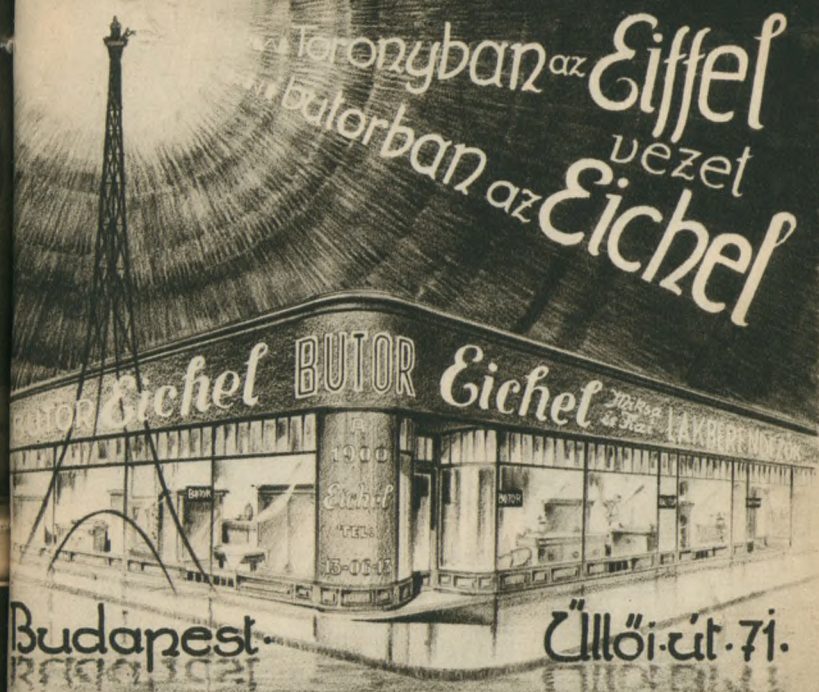 Toronyban az Eiffel
vezet
butorban az Eichel
BUTOR Eichel BUTOR Eichel Miksa és Fiai LAKBERENDEZŐK
1900
Eichel
TEL:
13-06-13
BUTOR
BUTOR
BUTOR
Budapest.
Üllői-út.71.